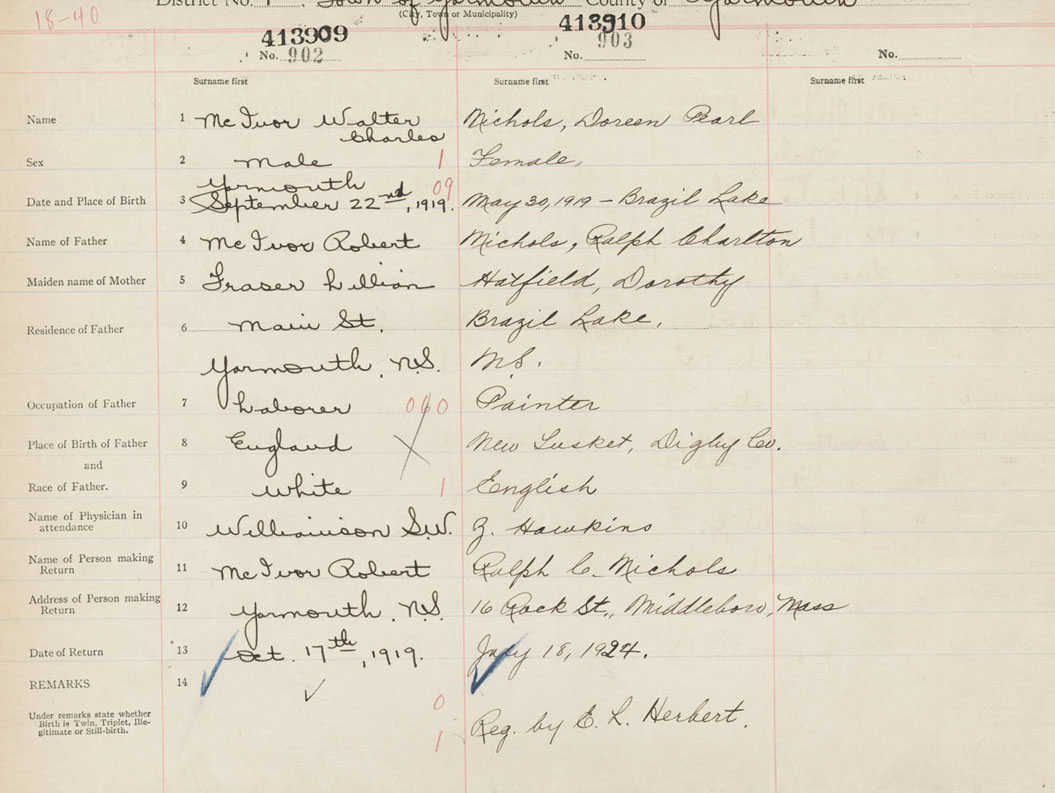 18-40
District No. 1. Town of Yarmouth County of Yarmouth
(City, Town or Municipality)
413909 413910
No. 902 No. 903 No.
Surname first Surname first Surname first
Name 1 McIvor Walter Nichols, Doreen Pearl
Charles
Sex 2 Male 1 Female,
Yarmouth 09
Date and Place of Birth 3 September 22nd, 1919. May 30, 1919 - Brazil Lake
Name of Father 4 McIvor Robert Nichols, Ralph Charlton
Maiden name of Mother 5 Fraser Lillian Hatfield, Dorothy
Residence of Father 6 Main St. Brazil Lake,
Yarmouth, N.S. N.S.
Occupation of Father 7 Laborer 060 Painter
Place of Birth of Father 8 England New Tusket, Digby Co.
and
Race of Father. 9 White 1 English
Name of Physician in
attendance 10 Williamson S.W. Z. Hawkins
Name of Person making
Return 11 McIvor Robert Ralph C. Nichols
Address of Person making
Return 12 Yarmouth, N.S. 16 Rock St., Middleboro, Mass
Date of Return 13 Oct. 17th, 1919. July 18, 1924.
REMARKS 14
Under remarks state whether
Birth is Twin, Triplet, Ille-
gitimate or Still-birth.
0
1
Reg. by E. L. Herbert.